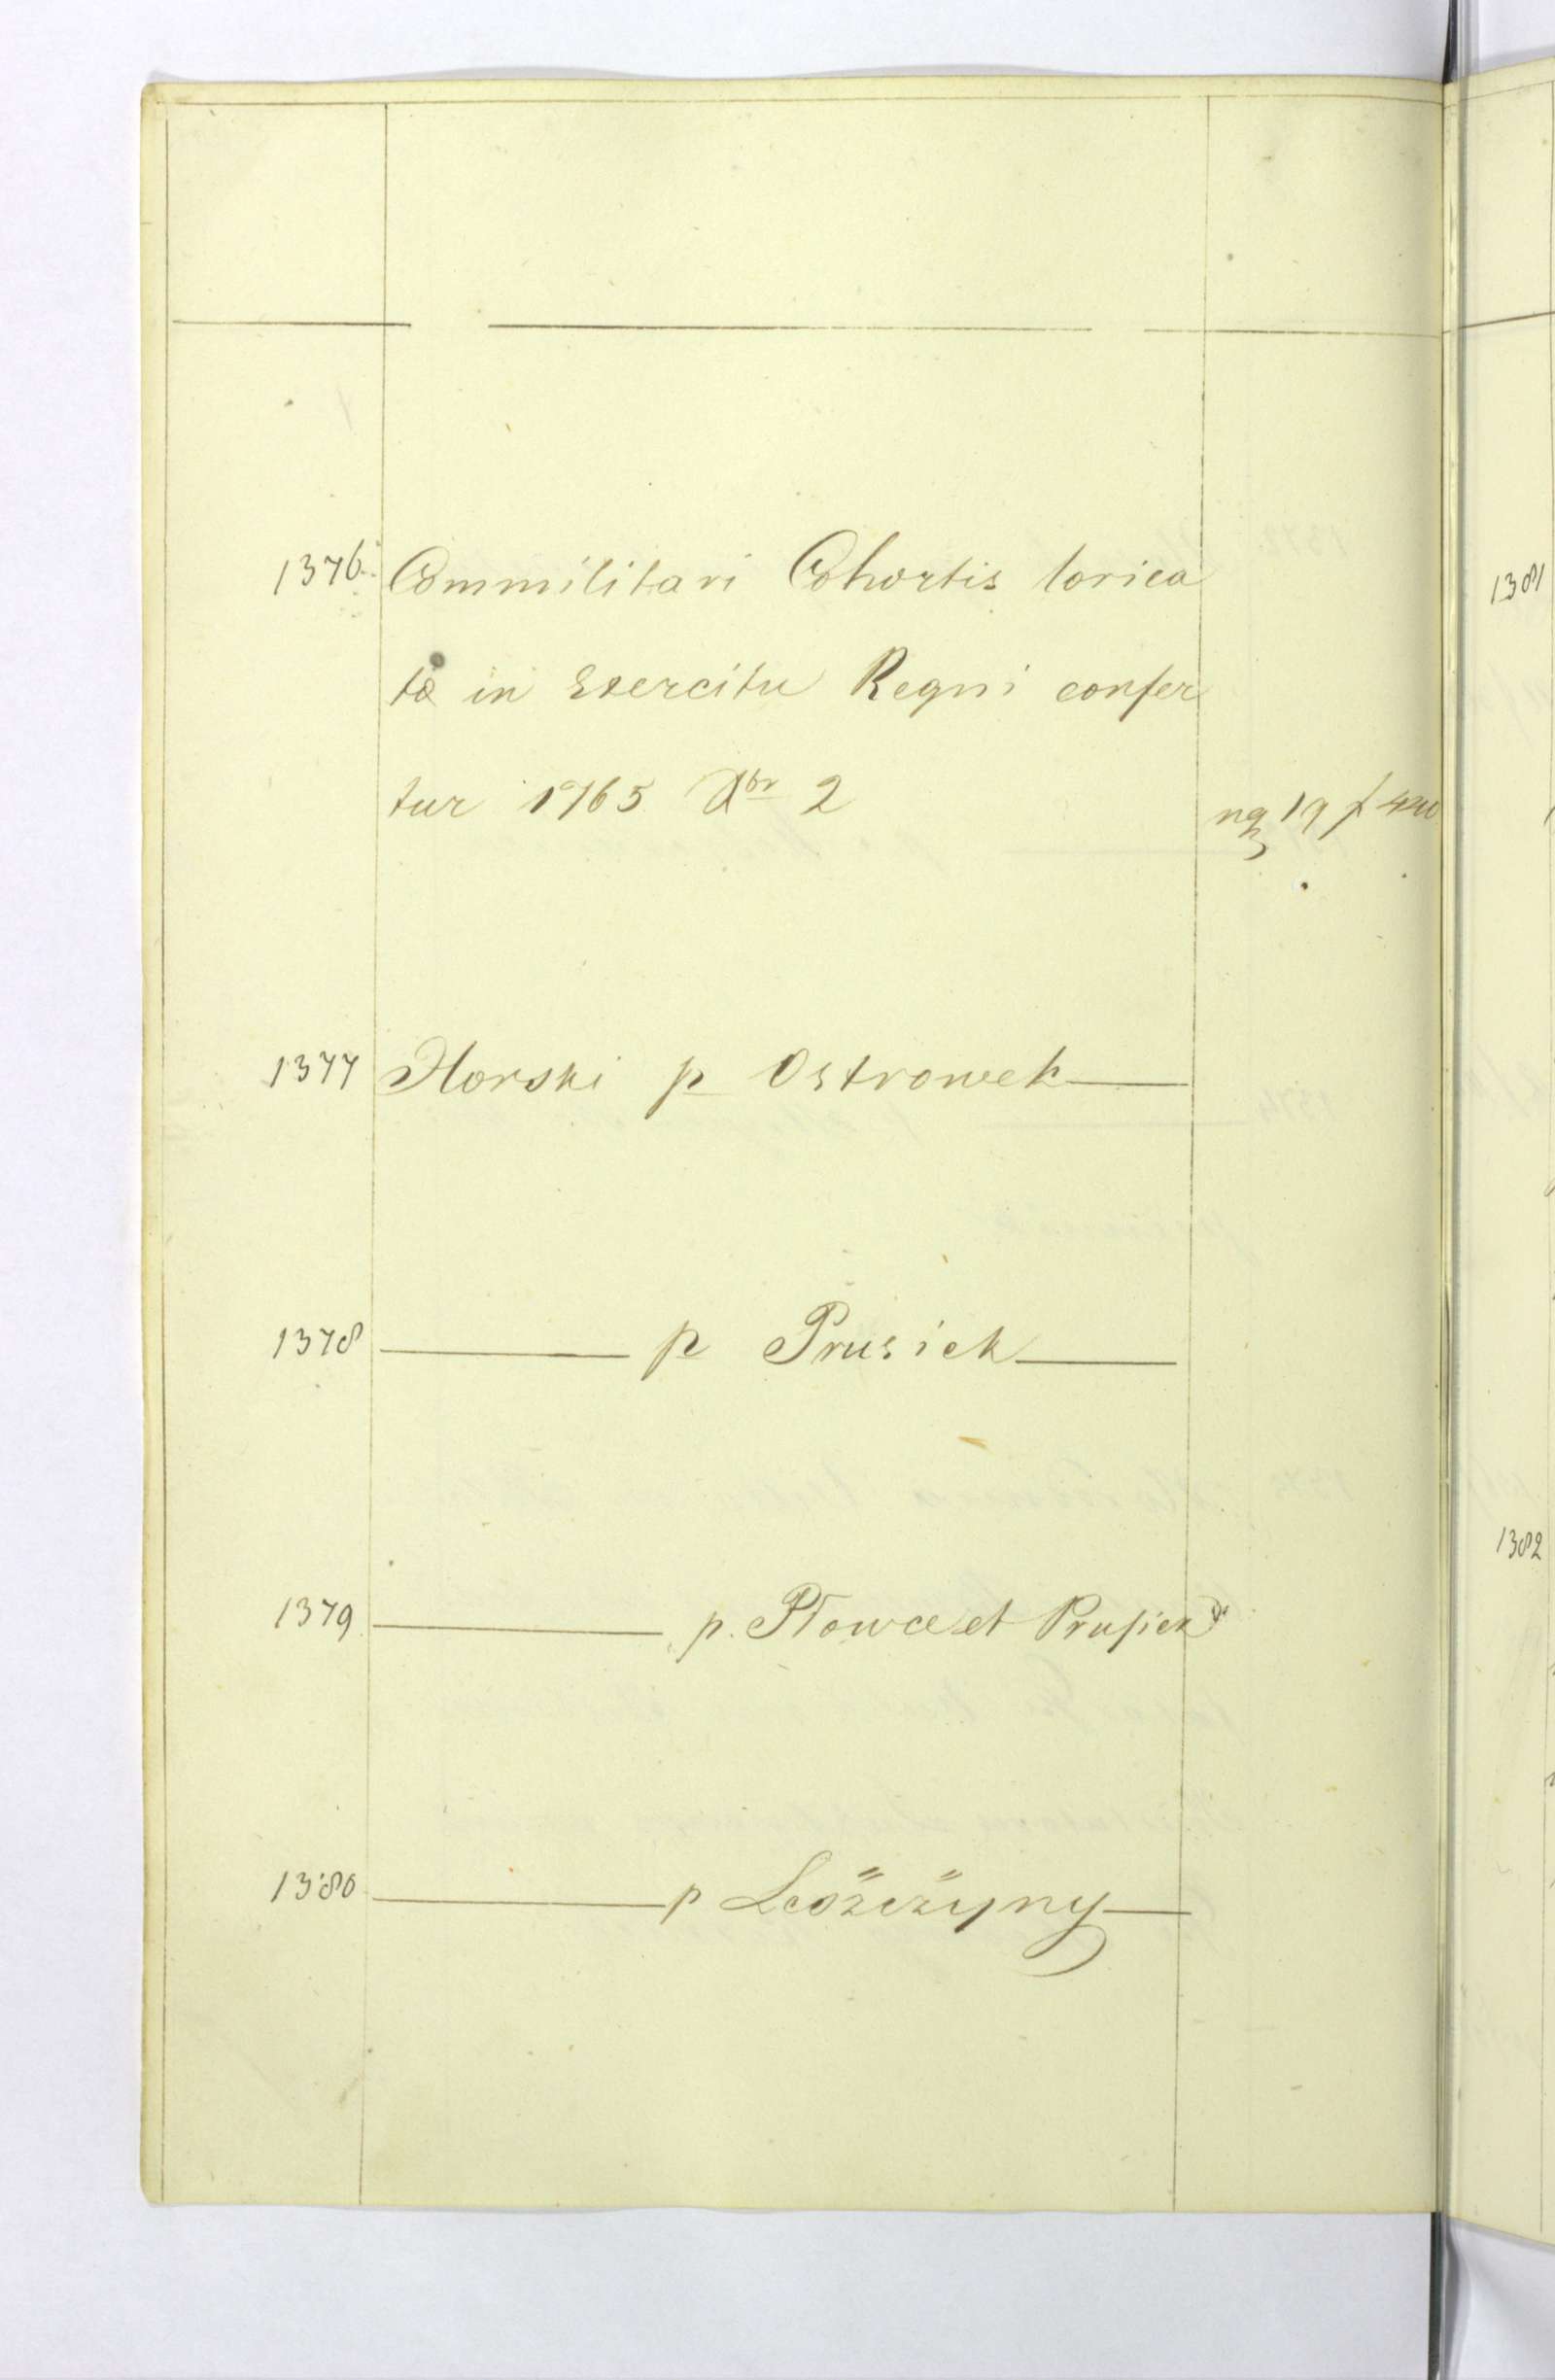 1376 Commilitari Cohortis lorica
tæ in Exercitu Regni confer
tur 1765 Xbr 2
1377 Horski p Ostrowek
1378 p Prusiek
1379 p. Płowce et Prusiek
1380 p
1381
1382